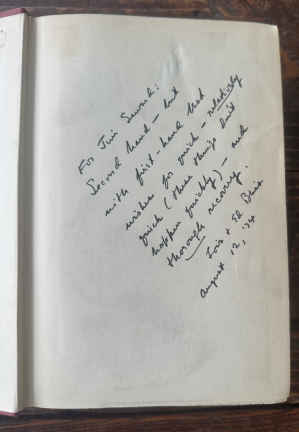 For Jim Seward:
Second hand – but
with first-hand best
wishes for quick – relatively
quick (these things don't
happen quickly) – and
thorough recovery.
Lois + Ed
August 12, '74